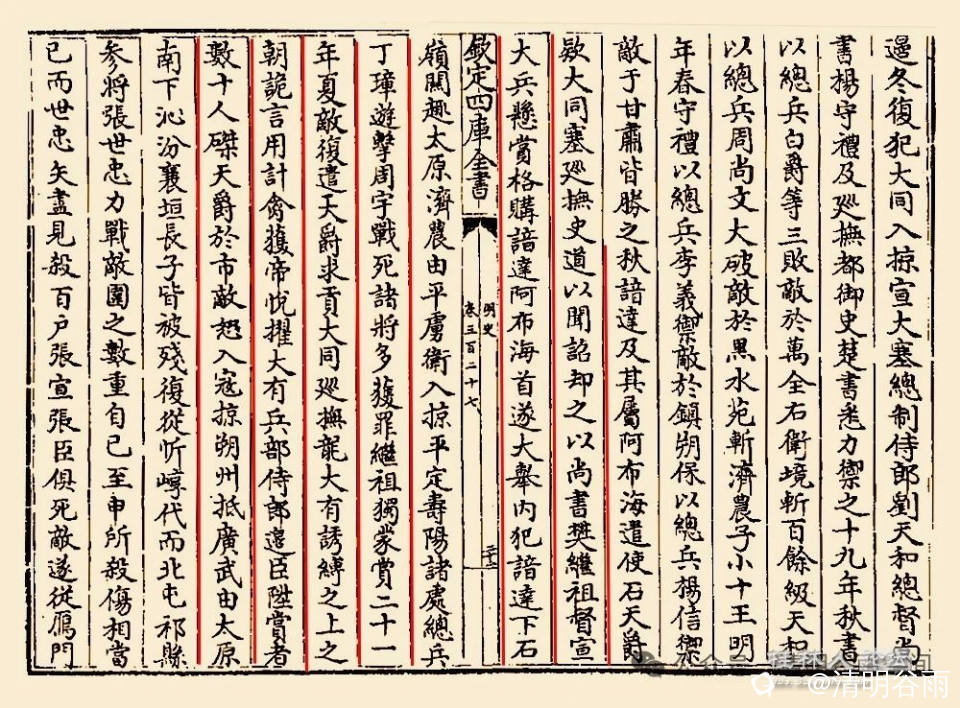 邉冬復犯大同入掠宣大塞總制侍郎劉天和總督尚
書楊守禮及廵撫都御史楚書悉力禦之十九年秋書
以總兵白爵等三敗敵於萬全右衛境斬百餘級天和
以總兵周尚文大破敵於黑水苑斬濟農子小十王明
年春守禮以總兵李義禦敵於鎮朔保以總兵楊信禦
敵于甘肅皆勝之秋諳達及其屬阿布海遣使石天爵
欵大同塞廵撫史道以聞詔却之以尚書樊繼祖督宣
大兵懸賞格購諳達阿布海首遂大舉内犯諳達下石
欽定四庫全書
明史
卷三百二十七
嶺關趣太原濟農由平虜衛入掠平定壽陽諸處總兵
丁璋遊擊周宇戰死諸將多獲罪繼祖獨蒙賞二十一
年夏敵復遣天爵求貢大同廵撫龍大有誘縛之上之
朝詭言用計禽獲帝悦擢大有兵部侍郎邉臣陞賞者
數十人磔天爵於市敵怒入寇掠朔州抵廣武由太原
南下沁汾襄垣長子皆被殘復從忻崞代而北屯祁縣
參將張世忠力戰敵圍之數重自已至申所殺傷相當
已而世忠矢盡見殺百户張宣張臣俱死敵遂從鴈門
@清明谷雨